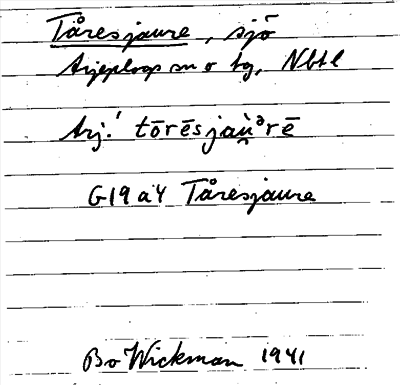 Tåresjaure, sjö
Arjeplogs sn o tg, Nbtl
Arj.! tōrēsjau̯ᵊrē
G19 a4 Tåresjaure
Bo Wickman 1941